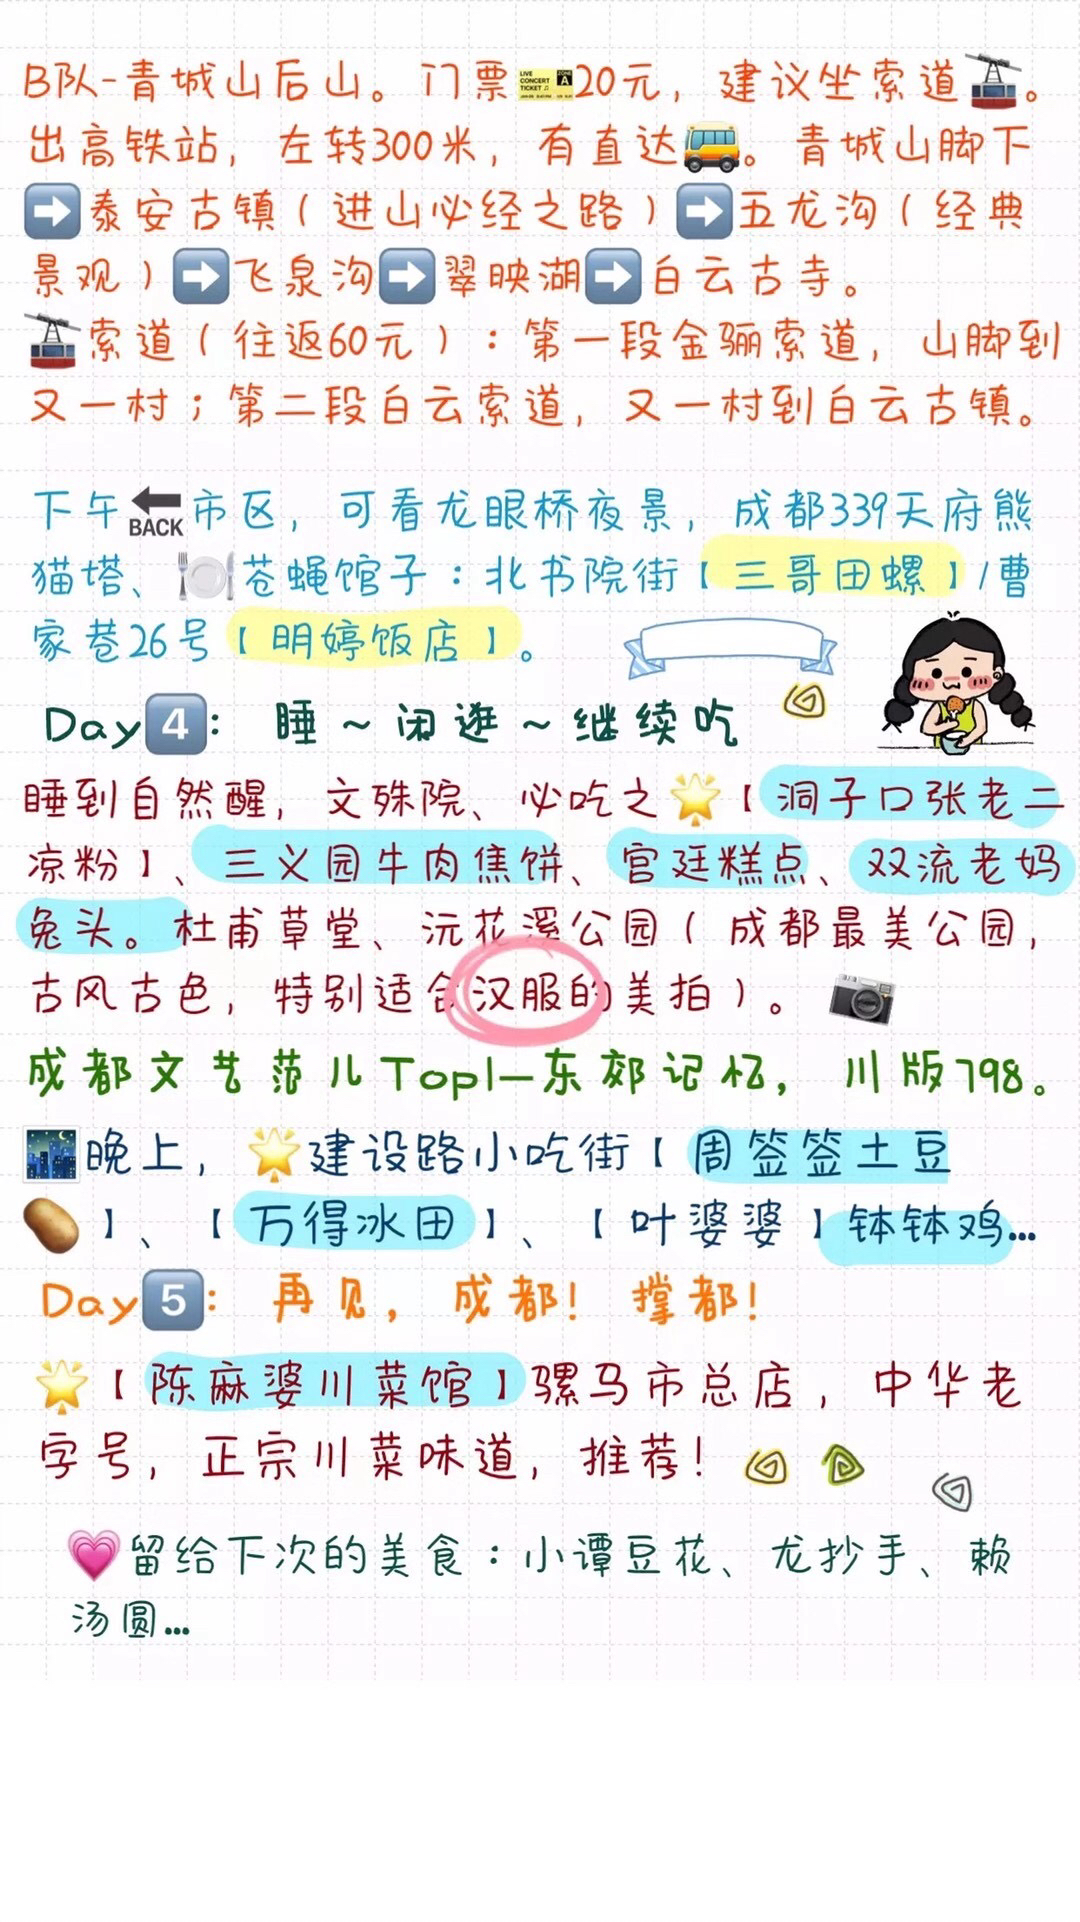 B队-青城山后山。门票20元，建议坐索道。
出高铁站，左转300米，有直达。青城山脚下
泰安古镇（进山必经之路）五龙沟（经典
景观）飞泉沟翠映湖白云古寺。
索道（往返60元）：第一段金骊索道，山脚到
又一村；第二段白云索道，又一村到白云古镇。
下午BACK市区，可看龙眼桥夜景，成都339天府熊
猫塔、苍蝇馆子：北书院街【三哥田螺】/曹
家巷26号【明婷饭店】。
Day4：睡～闲逛～继续吃
睡到自然醒，文殊院、必吃之【洞子口张老二
凉粉】、三义园牛肉焦饼、宫廷糕点、双流老妈
兔头。杜甫草堂、沅花溪公园（成都最美公园，
古风古色，特别适合汉服的美拍）。
成都文艺范儿Top1—东郊记忆，川版798。
晚上，建设路小吃街【周签签土豆
】、【万得冰田】、【叶婆婆】钵钵鸡...
Day5：再见，成都！撑都！
【陈麻婆川菜馆】骡马市总店，中华老
字号，正宗川菜味道，推荐！
留给下次的美食：小谭豆花、龙抄手、赖
汤圆...